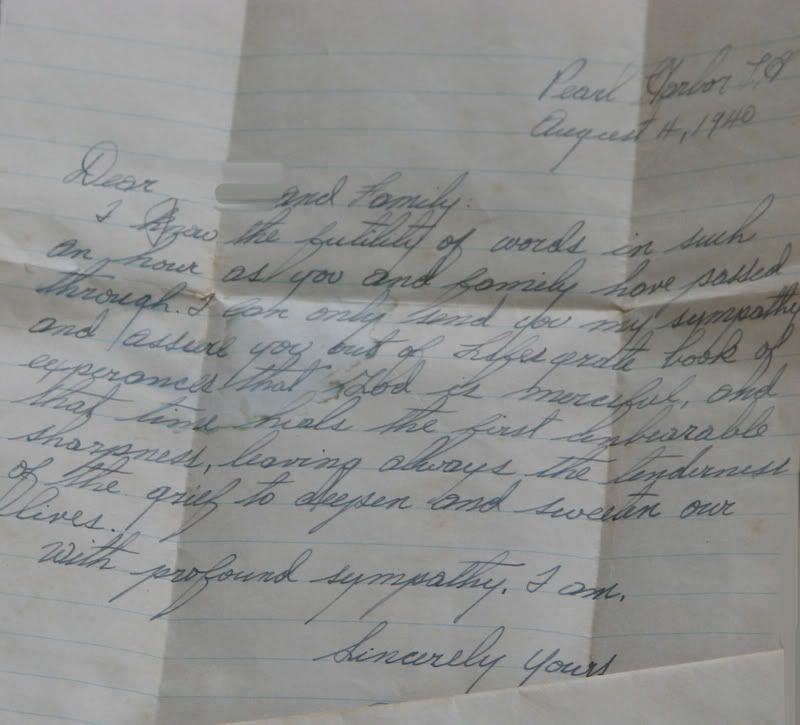 Pearl Harbor T.H
August 4, 1940
Dear and Family:
I know the futility of words in such
an hour as you and family have passed
through. I can only send you my sympathy
and assure you out of Lifes grate book of
experances that God is merciful, and
that time heals the first unbearable
sharpness, leaving always the tenderness
of the grief to deepen and sweeten our
lives.
With profound sympathy. I am.
Sincerely Yours